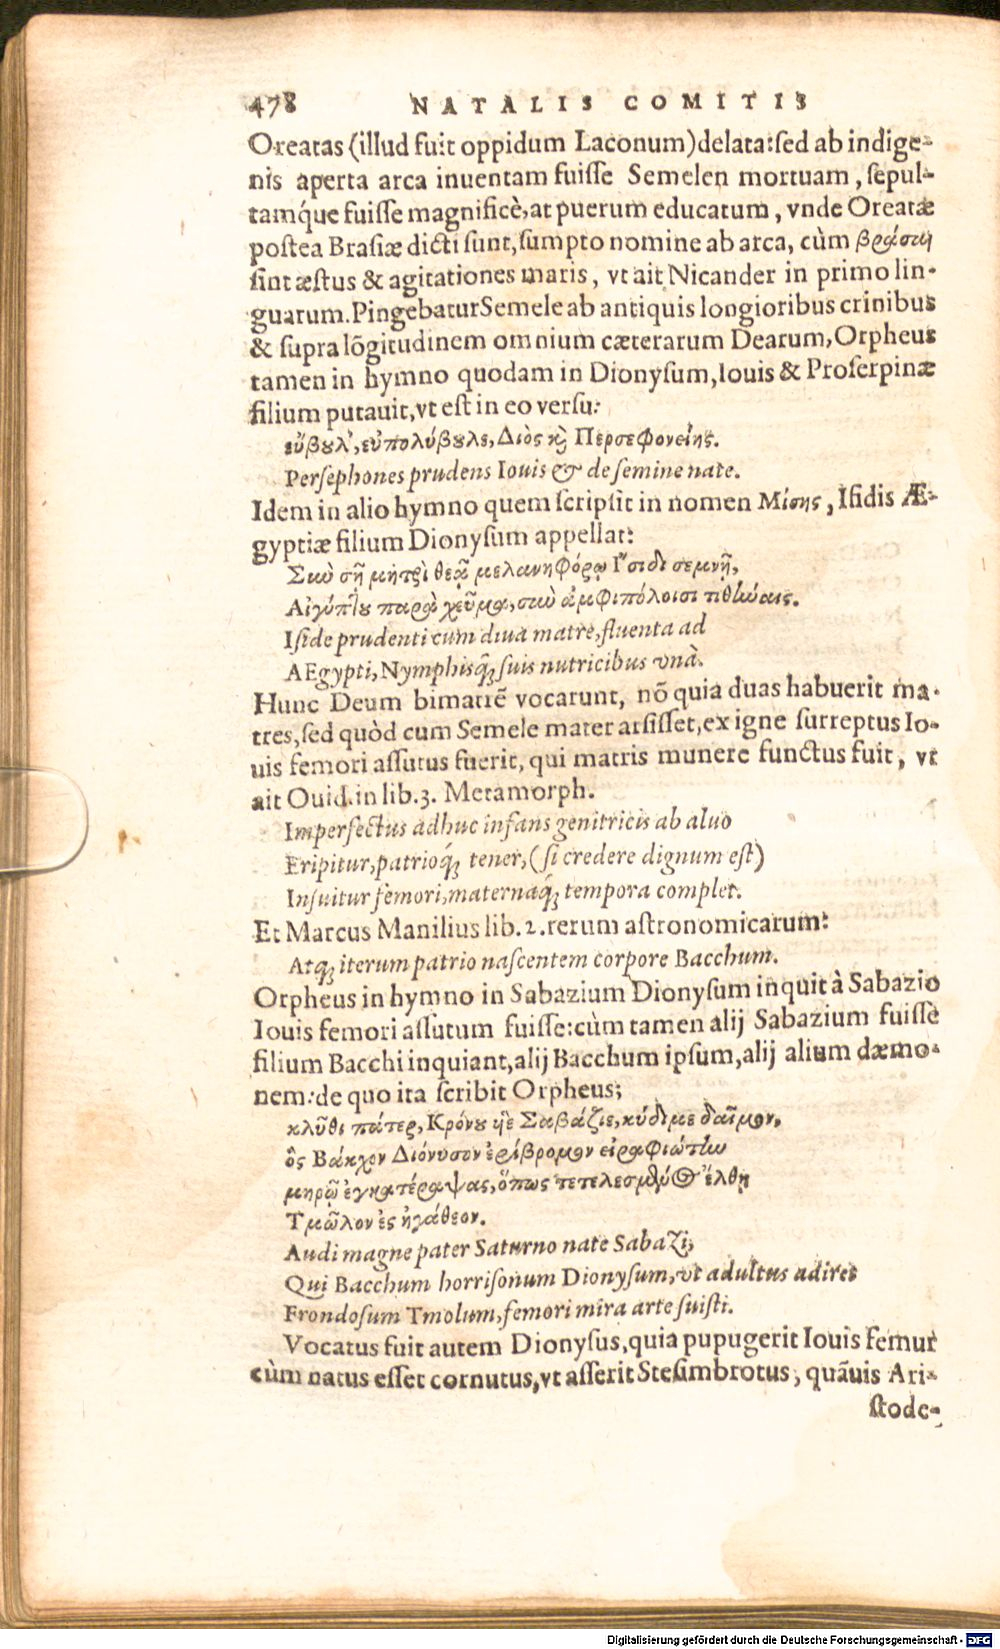 478 NATALIS COMITIS
Oreatas (illud fuit oppidum Laconum) delata: sed ab indige-
nis aperta arca inuentam fuiſſe Semelen mortuam, ſepul-
tamq́ue fuiſſe magnificè, at puerum educatum, vnde Oreatæ
poſtea Braſiæ dicti ſunt, ſumpto nomine ab arca, cùm βράσαι
ſint æſtus & agitationes maris, vt ait Nicander in primo lin-
guarum. Pingebatur Semele ab antiquis longioribus crinibus
& ſupra lõgitudinem omnium cæterarum Dearum, Orpheus
tamen in hymno quodam in Dionyſum, Iouis & Proſerpinæ
filium putauit, vt eſt in eo verſu:
εὔβȣλ', εὐπολύβȣλε, Διὸς κὶ Περσεφονείης.
Perſephones prudens Iouis & de ſemine nate.
Idem in alio hymno quem ſcripſit in nomen Μίσης, Iſidis Æ-
gyptiæ filium Dionyſum appellat:
Σὺν σῇ μητρὶ θεᾷ μελανηφόρῳ Ἴσιδι σεμνῇ,
Αἰγύπτȣ παρὰ χεῦμα, σὺν ἀμφιπόλοισι τιθήναις.
Iſide prudenti cum diua matre, fluenta ad
AEgypti, Nymphisq́; ſuis nutricibus vnà.
Hunc Deum bimatrẽ vocarunt, nõ quia duas habuerit ma-
tres, ſed quòd cum Semele mater arſiſſet, ex igne ſurreptus Io-
uis femori aſſutus fuerit, qui matris munere functus fuit, vt
ait Ouid. in lib. 3. Metamorph.
Imperfectus adhuc infans genitricis ab aluo
Eripitur, patrioq́; tener, (ſi credere dignum eſt)
Inſuitur femori, maternaq́; tempora complet.
Et Marcus Manilius lib. 2. rerum aſtronomicarum:
Atq; iterum patrio naſcentem corpore Bacchum.
Orpheus in hymno in Sabazium Dionyſum inquit à Sabazio
Iouis femori aſſutum fuiſſe: cùm tamen alij Sabazium fuiſſe
filium Bacchi inquiant, alij Bacchum ipſum, alij alium dæmo-
nem: de quo ita ſcribit Orpheus;
κλῦθι πάτερ, Κρόνȣ ὑὲ Σαβάζιε, κύδιμε δαῖμον,
ὃς Βάκχον Διόνυσον ἐρίβρομον εἰραφιώτην
μηρῷ ἐγκατέραψας, ὅπως τετελεσμένος ἔλθῃ
Τμῶλον ἐς ἠγάθεον.
Audi magne pater Saturno nate Sabazi,
Qui Bacchum horriſonum Dionyſum, vt adultus adiret
Frondoſum Tmolum, femori mira arte ſuiſti.
Vocatus fuit autem Dionyſus, quia pupugerit Iouis femur
cùm natus eſſet cornutus, vt aſſerit Steſimbrotus, quãuis Ari-
ſtode-
Digitalisierung gefördert durch die Deutsche Forschungsgemeinschaft - DFG